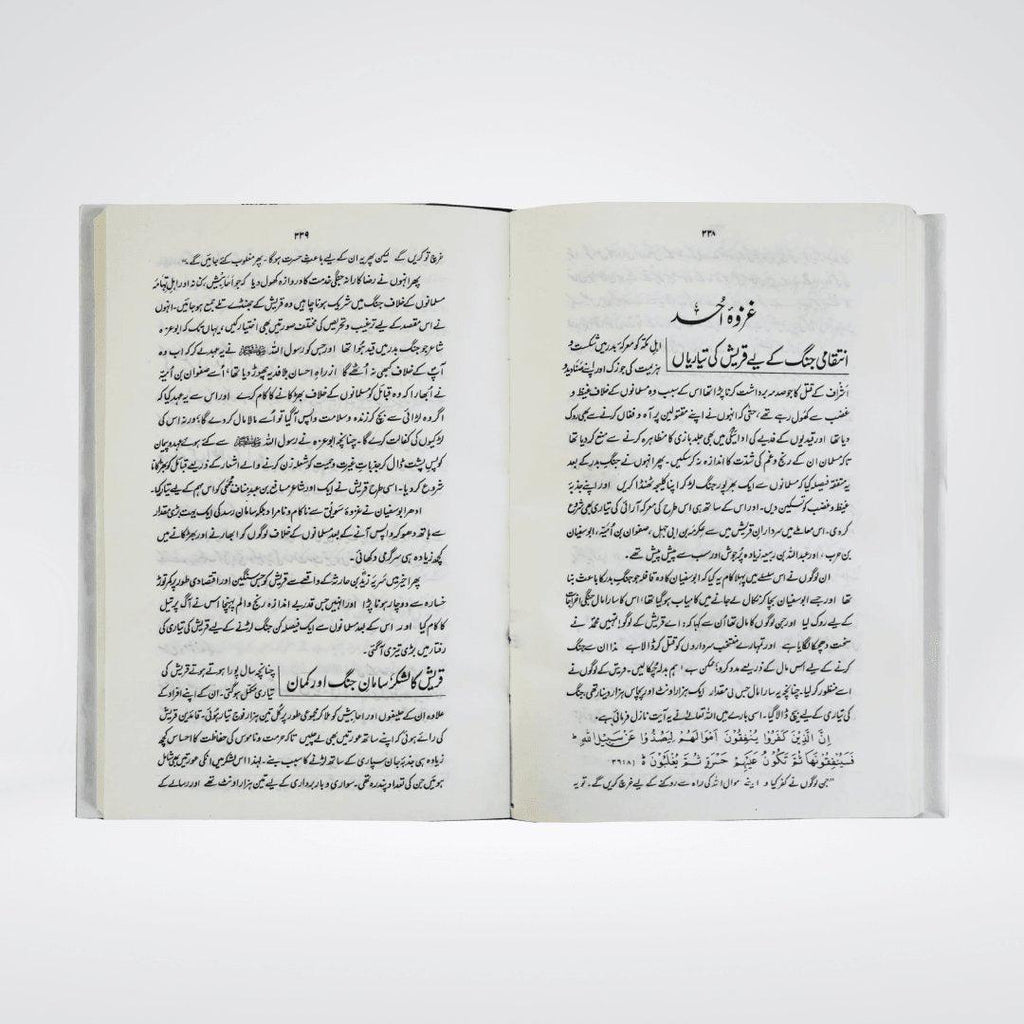 ۳۳۸
غزوۂ اُحد
انتقامی جنگ کے لیے قریش کی تیاریاں
اہلِ مکہ کو معرکۂ بدر میں شکست و
ہزیمت کی جو زک اور اپنے صنادید و
اشراف کے قتل کا جو صدمہ برداشت کرنا پڑا تھا اس کے سبب وہ مسلمانوں کے خلاف غیظ و
غضب سے کھول رہے تھے، حتیٰ کہ انہوں نے اپنے مقتولین پر آہ و فغاں کرنے سے بھی روک
دیا تھا اور قیدیوں کے فدیے کی ادائیگی میں بھی جلد بازی کا مظاہرہ کرنے سے منع کر دیا تھا
تاکہ مسلمان ان کے رنج و غم کی شدت کا اندازہ نہ کر سکیں۔ پھر انہوں نے جنگِ بدر کے بعد
یہ متفقہ فیصلہ کیا کہ مسلمانوں سے ایک بھر پور جنگ لڑ کر اپنا کلیجہ ٹھنڈا کریں اور اپنے جذبۂ
غیظ و غضب کو تسکین دیں۔ اور اس کے ساتھ ہی اس طرح کی معرکہ آرائی کی تیاری بھی شروع
کر دی۔ اس معاملے میں سردارانِ قریش میں سے عکرمہ بن ابی جہل، صفوان بن اُمیّہ، ابوسفیان
بن حرب، اور عبداللہ بن ربیعہ زیادہ پُرجوش اور سب سے پیش پیش تھے۔
ان لوگوں نے اس سلسلے میں پہلا کام یہ کیا کہ ابوسفیان کا وہ قافلہ جو جنگِ بدر کا باعث بنا
تھا اور جسے ابوسفیان بچا کر نکال لے جانے میں کامیاب ہو گیا تھا، اس کا سارا مال جنگی اخراجات
کے لیے روک لیا اور جن لوگوں کا مال تھا اُن سے کہا کہ: اے قریش کے لوگو! تمہیں محمدؐ نے
سخت دھچکا لگایا ہے اور تمہارے منتخب سرداروں کو قتل کر ڈالا ہے۔ لہٰذا ان سے جنگ
کرنے کے لیے اس مال کے ذریعے مدد کرو؛ ممکن ہے ہم بدلہ چکا لیں۔ قریش کے لوگوں نے
اسے منظور کر لیا۔ چنانچہ یہ سارا مال جس کی مقدار ایک ہزار اونٹ اور پچاس ہزار دینار تھی، جنگ
کی تیاری کے لیے بیچ ڈالا گیا۔ اسی بارے میں اللہ تعالیٰ نے یہ آیت نازل فرمائی ہے۔
اِنَّ الَّذِیْنَ کَفَرُوْا یُنْفِقُوْنَ اَمْوَالَھُمْ لِیَصُدُّوْا عَنْ سَبِیْلِ اللّٰہِ ط
فَسَیُنْفِقُوْنَھَا ثُمَّ تَکُوْنُ عَلَیْھِمْ حَسْرَۃً ثُمَّ یُغْلَبُوْنَ ہ (۸:۳۶)
”جن لوگوں نے کفر کیا وہ اپنے اموال اللہ کی راہ سے روکنے کے لیے خرچ کریں گے۔ تو یہ
۳۳۹
خرچ تو کریں گے لیکن پھر یہ ان کے لیے باعثِ حسرت ہوگا۔ پھر مغلوب کئے جائیں گے۔“
پھر انہوں نے رضاکارانہ جنگی خدمت کا دروازہ کھول دیا کہ جو احابیش، کنانہ اور اہلِ تہامہ
مسلمانوں کے خلاف جنگ میں شریک ہونا چاہیں وہ قریش کے جھنڈے تلے جمع ہو جائیں۔ انہوں
نے اس مقصد کے لیے ترغیب و تحریص کی مختلف صورتیں بھی اختیار کیں، یہاں تک کہ ابو عزہ
شاعر جو جنگ بدر میں قید ہوا تھا اور جس کو رسول اللہ ﷺ نے یہ عہد لے کر کہ اب وہ
آپؐ کے خلاف کبھی نہ اُٹھے گا ازراہِ احسان بلا فدیہ چھوڑ دیا تھا، اُسے صفوان بن اُمیّہ
نے اُبھارا کہ وہ قبائل کو مسلمانوں کے خلاف بھڑکانے کا کام کرے اور اس سے یہ عہد کیا کہ
اگر وہ لڑائی سے بچ کر زندہ و سلامت واپس آگیا تو اُسے مالا مال کر دے گا؛ ورنہ اس کی
لڑکیوں کی کفالت کرے گا۔ چنانچہ ابو عزہ نے رسول اللہ ﷺ سے کئے ہوئے عہد و پیمان
کو پسِ پشت ڈال کر جذباتِ غیرت و حمیت کو شعلہ زن کرنے والے اشعار کے ذریعے قبائل کو بھڑکانا
شروع کر دیا۔ اسی طرح قریش نے ایک اور شاعر مسافع بن عبد مناف جمحی کو اس مہم کے لیے تیار کیا۔
ادھر ابوسفیان نے غزوۂ سَویق سے ناکام و نامراد بلکہ سامانِ رسد کی ایک بہت بڑی مقدار
سے ہاتھ دھو کر واپس آنے کے بعد مسلمانوں کے خلاف لوگوں کو ابھارنے اور بھڑکانے میں
کچھ زیادہ ہی سرگرمی دکھائی۔
پھر اخیر میں سَریۂ زید بن حارثہ کے واقعے سے قریش کو جس سنگین اور اقتصادی طور پر کمر توڑ
خسارہ سے دوچار ہونا پڑا اور انہیں جس قدر بے اندازہ رنج و الم پہنچا اس نے آگ پر تیل
کا کام کیا اور اس کے بعد مسلمانوں سے ایک فیصلہ کن جنگ لڑنے کے لیے قریش کی تیاری کی
رفتار میں بڑی تیزی آگئی۔
قریش کا لشکر، سامانِ جنگ اور کمان
چنانچہ سال پورا ہوتے ہوتے قریش کی
تیاری مکمل ہو گئی۔ ان کے اپنے افراد کے
علاوہ ان کے حلیفوں اور احابیش کو ملا کر مجموعی طور پر کل تین ہزار فوج تیار ہوئی۔ قائدینِ قریش
کی رائے ہوئی کہ اپنے ساتھ عورتیں بھی لے چلیں تاکہ حرمت و ناموس کی حفاظت کا احساس کچھ
زیادہ ہی جذبۂ جان سپاری کے ساتھ لڑنے کا سبب بنے۔ لہٰذا اس لشکر میں ان کی عورتیں بھی شامل
ہوئیں جن کی تعداد پندرہ تھی۔ سواری و بار برداری کے لیے تین ہزار اونٹ تھے اور رسالے کے